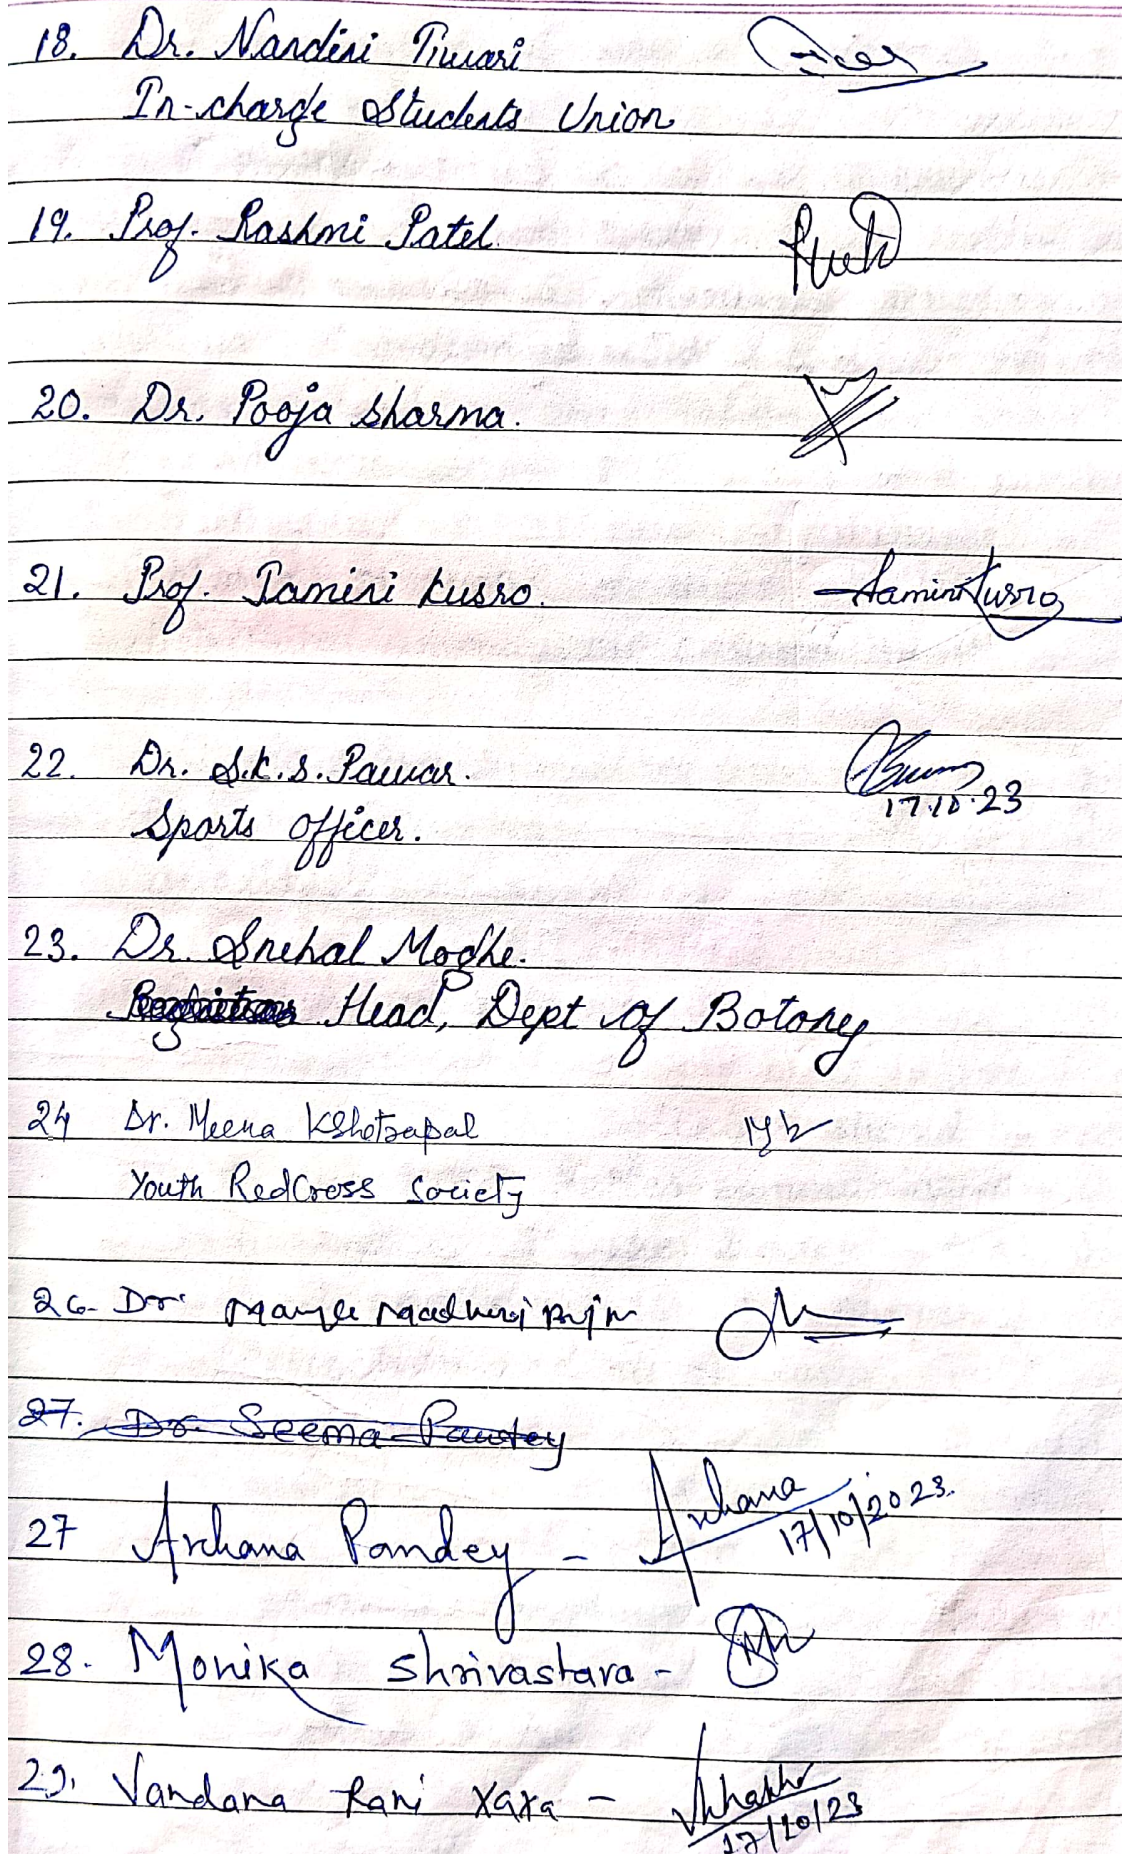 18. Dr. Nandini Tiwari
In-charge Students Union
19. Prof. Rashmi Patel.
20. Dr. Pooja Sharma.
21. Prof. Jamini Kusro. Kusro
22. Dr. S.K.S. Pawar.
17.10.23
Sports Officer.
23. Dr. Snehal Moghe.
Head, Dept of Botony
24 Dr. Meena Kshetrapal
Youth RedCross Society
26- Dr.
27. Dr. Seema Pandey
27 Archana Pandey - Archana
17/10/2023.
28. Monika Shrivastava -
29. Vandana Rani Xaxa -
17/10/23